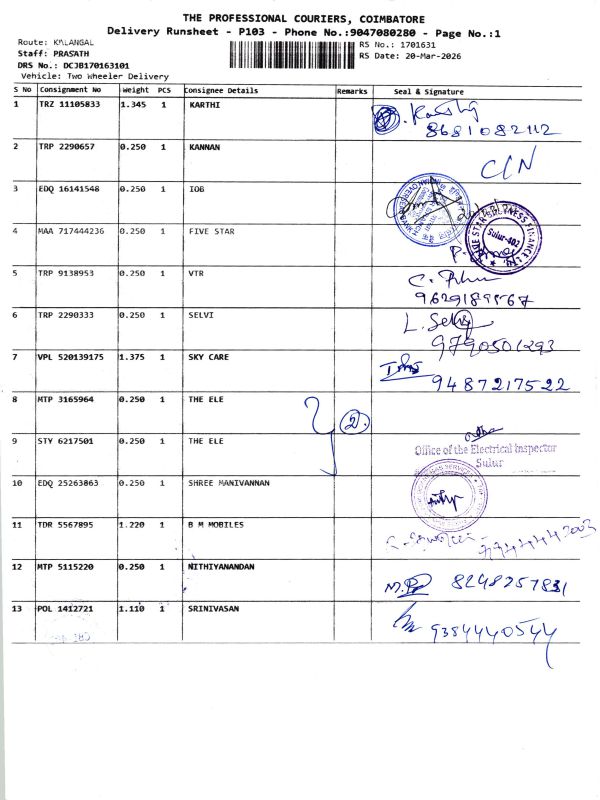 THE PROFESSIONAL COURIERS, COIMBATORE
Delivery Runsheet - P103 - Phone No.:9047080280 - Page No.:1
Route: KALANGAL
RS No.: 1701631
Staff: PRASATH
RS Date: 20-Mar-2026
DRS No.: DCJB170163101
Vehicle: Two Wheeler Delivery
S No Consignment No Weight PCS Consignee Details Remarks Seal & Signature
1 TRZ 11105833 1.345 1 KARTHI
8681082112
2 TRP 2290657 0.250 1 KANNAN C/N
3 EDQ 16141548 0.250 1 IOB
4 MAA 717444236 0.250 1 FIVE STAR
FIVE STAR BUSINESS FINANCE LTD.
Sulur-402
5 TRP 9138953 0.250 1 VTR
6 TRP 2290333 0.250 1 SELVI L. Selvi
9790501293
7 VPL 520139175 1.375 1 SKY CARE
9487217522
8 MTP 3165964 0.250 1 THE ELE 2
9 STY 6217501 0.250 1 THE ELE
Office of the Electrical Inspector
Sulur
10 EDQ 25263863 0.250 1 SHREE MANIVANNAN
11 TDR 5567895 1.220 1 B M MOBILES
12 MTP 5115220 0.250 1 NITHIYANANDAN
8248257831
13 POL 1412721 1.110 1 SRINIVASAN
9384440544